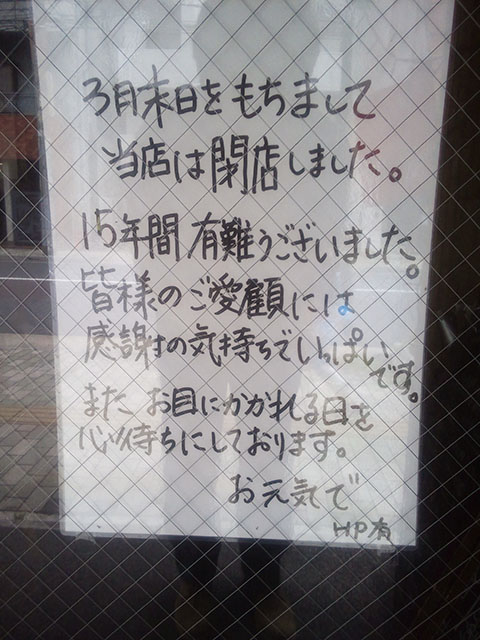 3月末日をもちまして
当店は閉店しました。
15年間有難うございました。
皆様のご愛顧には
感謝の気持ちでいっぱい
です。
またお目にかかれる日を
心待ちにしております。
お元気で
HP有